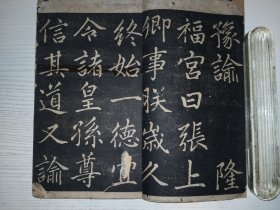 豫諭隆
福宮曰張上
卿事朕歲久
終始一德
令諸皇孫尊
信其道又諭